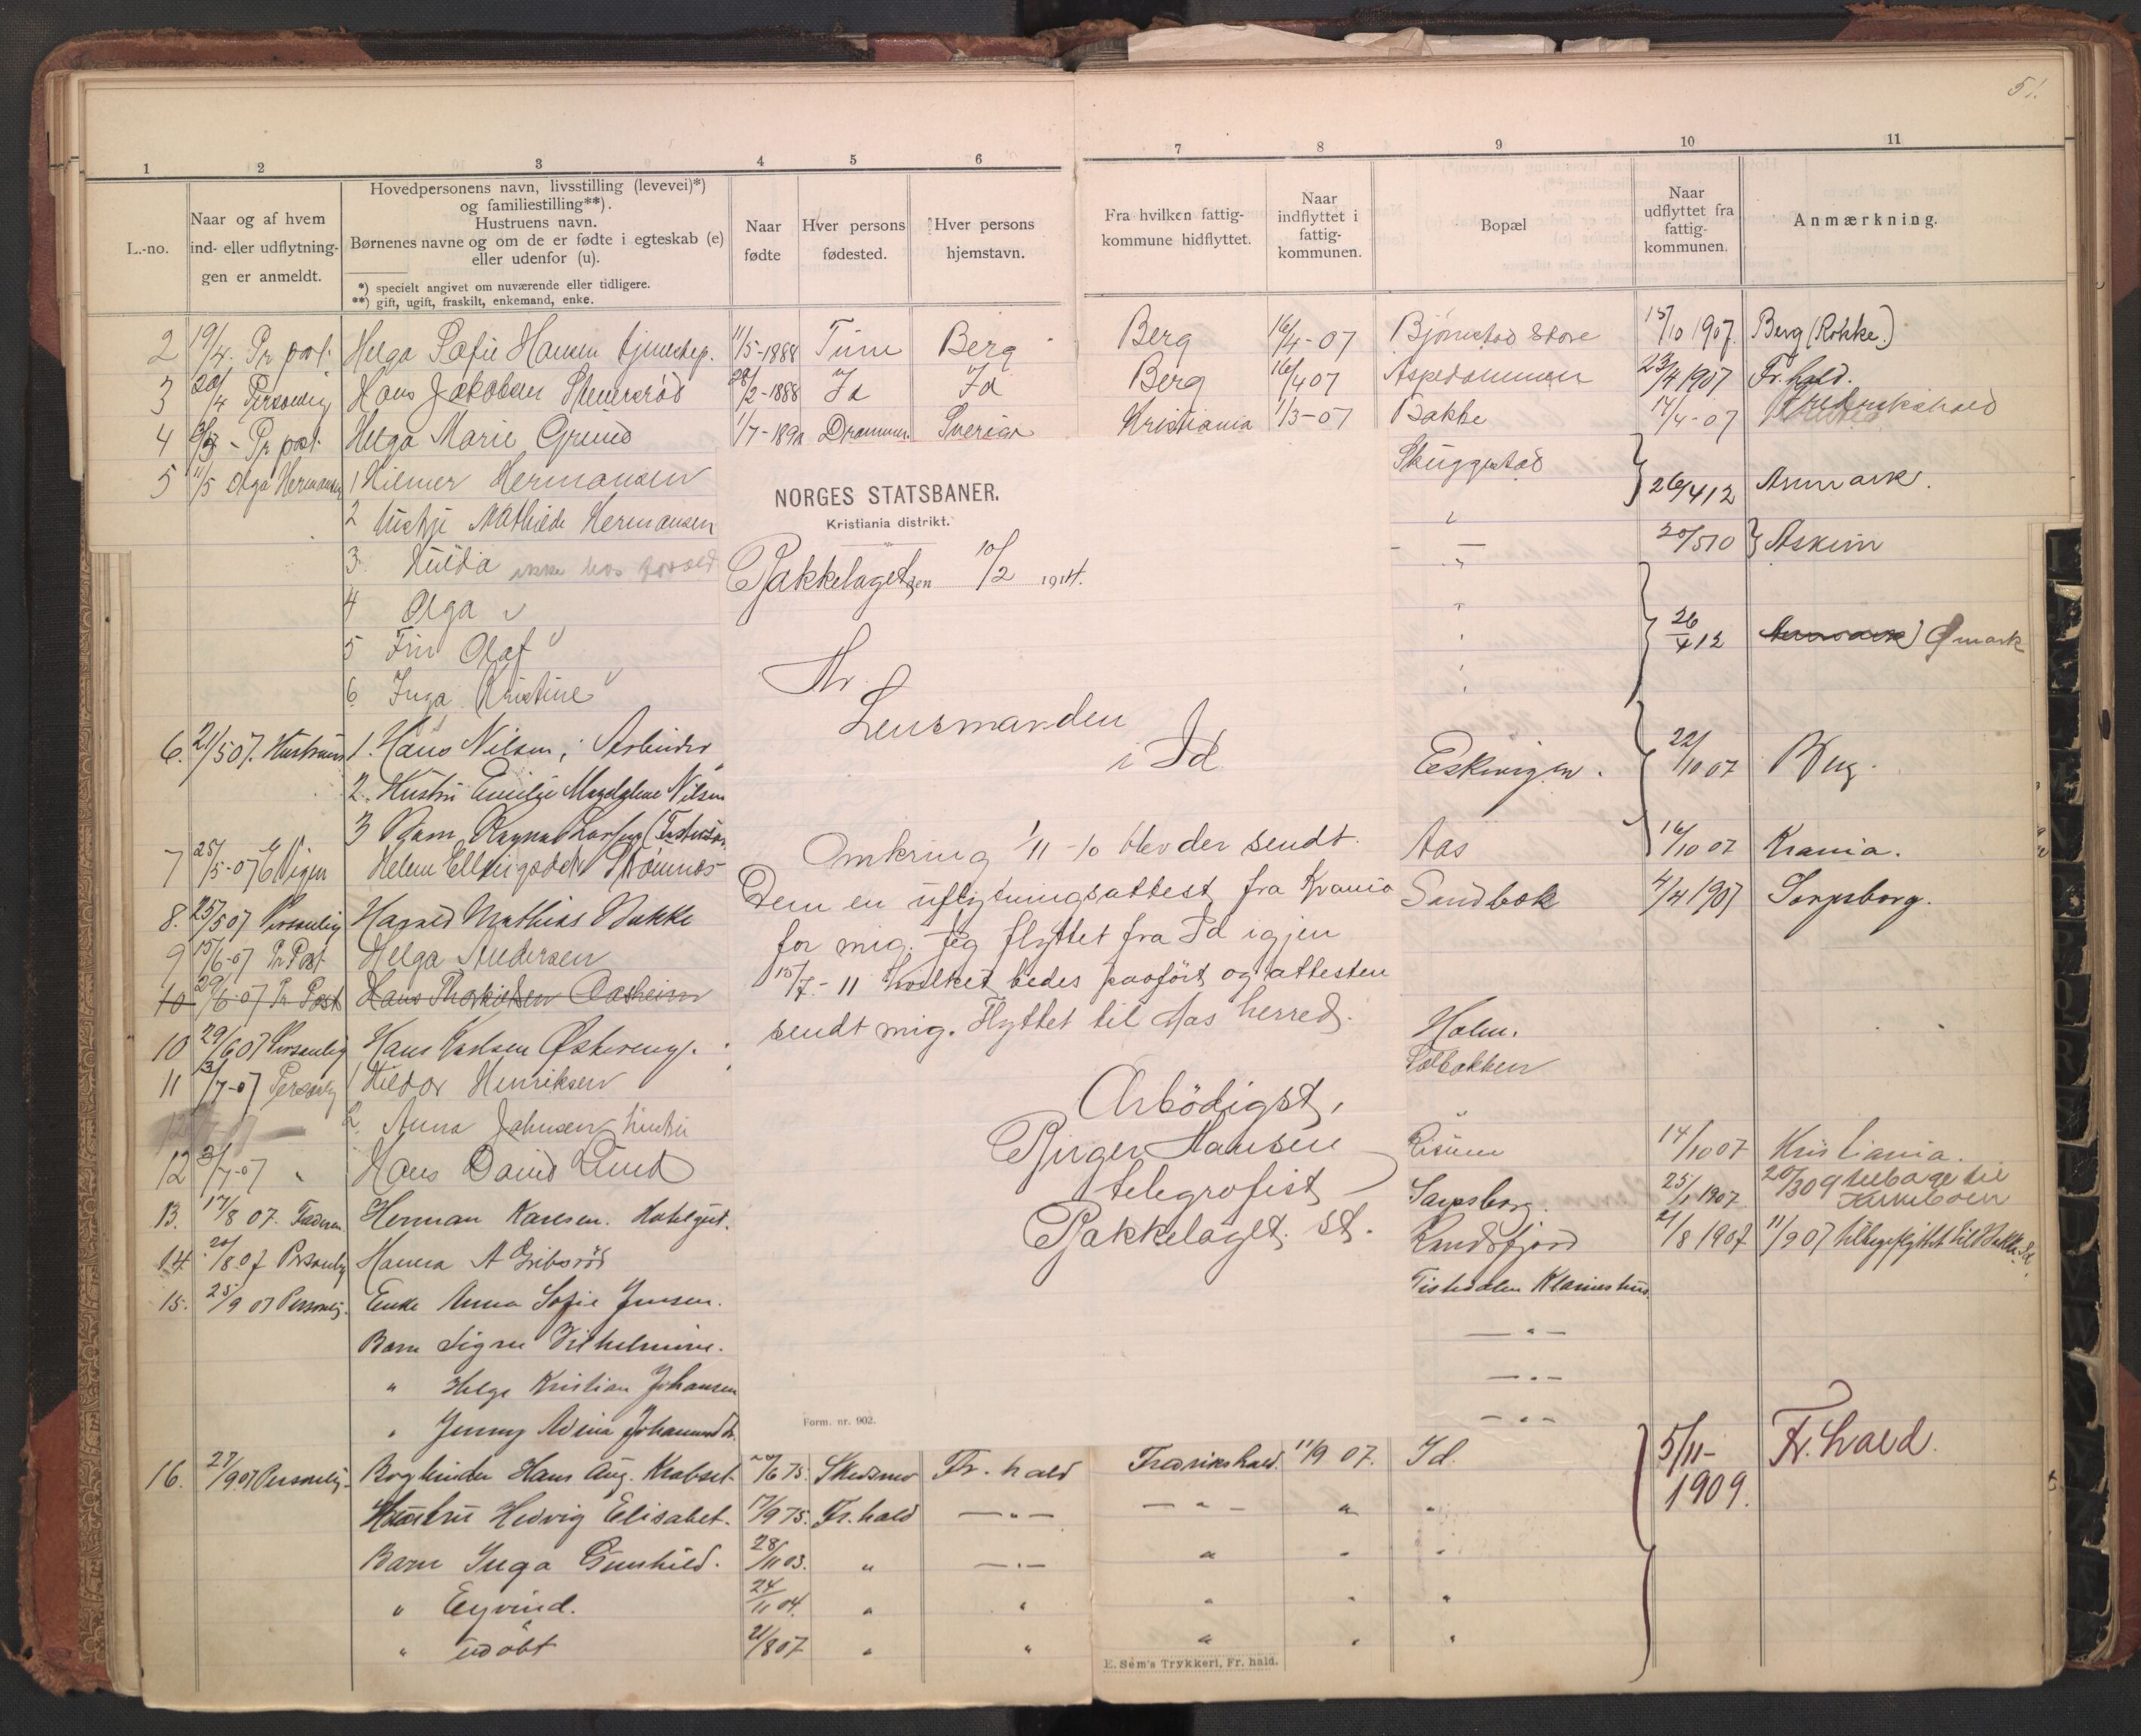 51.
1 2 3 4 5 6 7 8 9 10 11
L.-no.
Naar og af hvem
ind- eller udflytnin-
gen er anmeldt.
Hovedpersonens navn, livsstilling (levevei)*)
og familiestilling**).
Hustruens navn.
Børnenes navne og om de er fødte i egteskab (e)
eller udenfor (u).
*) specielt angivet om nuværende eller tidligere.
**) gift, ugift, fraskilt, enkemand, enke.
Naar
fødte
Hver persons
fødested.
Hver persons
hjemstavn.
Fra hvilken fattig-
kommune hidflyttet.
Naar
indflyttet i
fattig-
kommunen.
Bopæl
Naar
udflyttet fra
fattig-
kommunen.
Anmærkning.
2 19/4. Pr post. Helga Sofie Hansen tjenestep. 11/5-1888 Tune Berg Berg 16/4-07 Bjørnstad Store 15/10 1907. Berg (Rokke.)
3 20/4 Personlig Hans Jakobsen 28/2-1888 Id Id Berg 16/4 07 Aspedammen 23/4 1907 Fr.hald.
4 Pr post. Helga Marie Grund 1/7-189 Drammen Sverige Kristiania 1/3-07 Bakke 17/4-07 Fredrikshald
5 11/5 Olga Hermansen 1 Hilmer Hermansen Skuggestad 26/4 12 Aremark.
2 Mathilde Hermansen 20/5 10 Askim
3 Hulda
4 Olga
5 Finn Olaf 26/4 12 Ømark
6 Inga Kristine
6. 21/5 07. Hustruen 1. Hans Nilsen, Arbeider Eskevigen. 22/10 07 Berg.
2. Hustru Emilie Magdalene Nilsen
3 Barn Ragna
7 25/5-07 Helene Strømnes Aas 16/10 07 Krania.
8. 25/5 07 Personlig Harald Mathias Bakke Sandbæk 4/4 1907 Sarpsborg.
9 15/6-07 Pr Post Helga Andersen
10 29/6-07 Pr Post Hans
10 29/6 07 Personlig Hans Karlsen Holm.
11 3/7-07 Personlig 1 Hildor Henriksen Solbakken
2. Anna Johnsen hustru
12 3/7-07 " Hans David Lund Risum 14/10 07 Kristiania.
13. 17/8 07. Faderen Herman Karlsen. Sarpsborg. 25/ 1907. 20/3 09 tilbage til
14. 20/8 07 Personlig Hanna A Randsfjord 21/8 1907 11/9 07 tilbageflyttet til Id.
15. 25/9 07 Personlig. Enke Anna Sofie Jensen. Tistedalen
Barn Signe Vilhelmine. — " —
" Helge Kristian Johansen — " —
" Jenny — " —
16. 27/9 07 Personlig. Bogbinder Hans Aug. /6 75. Skedsmo Fr. hald Fredrikshald. 11/9 07. Id. 5/11-1909. Fr. hald.
Hustru Hedvig Elisabet. 17/9 75. Fr. hald — " — — " — " "
Barn Inga Gunhild. 28/11 03. " — " — " " "
" Eyvind. 24/11 04. " " " " "
" udøbt 21/8 07 " " " " "
NORGES STATSBANER.
Kristiania distrikt.
Bakkelaget den 10/2 1914.
Hr.
Lensmanden
i Id
Omkring 1/11-10 blev der sendt
Dem en uflytningsattest fra Krania
for mig. Jeg flyttet fra Id igjen
15/7.-11 hvilket bedes paaført og attesten
sendt mig. Flyttet til Aas herred.
Ærbödigst,
Birger Hansen
telegrafist
Bakkelaget. st.
Form. nr. 902.
E. Sem's Trykkeri, Fr. hald.